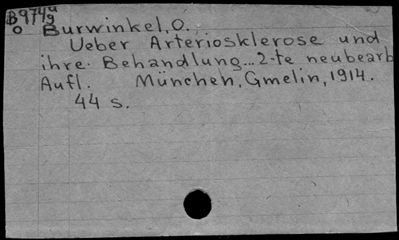 Burwinkel, O.
Ueber Arteriosklerose und
ihre Behandlung...2-te neubearb
Aufl. München, Gmelin, 1914.
44 s.